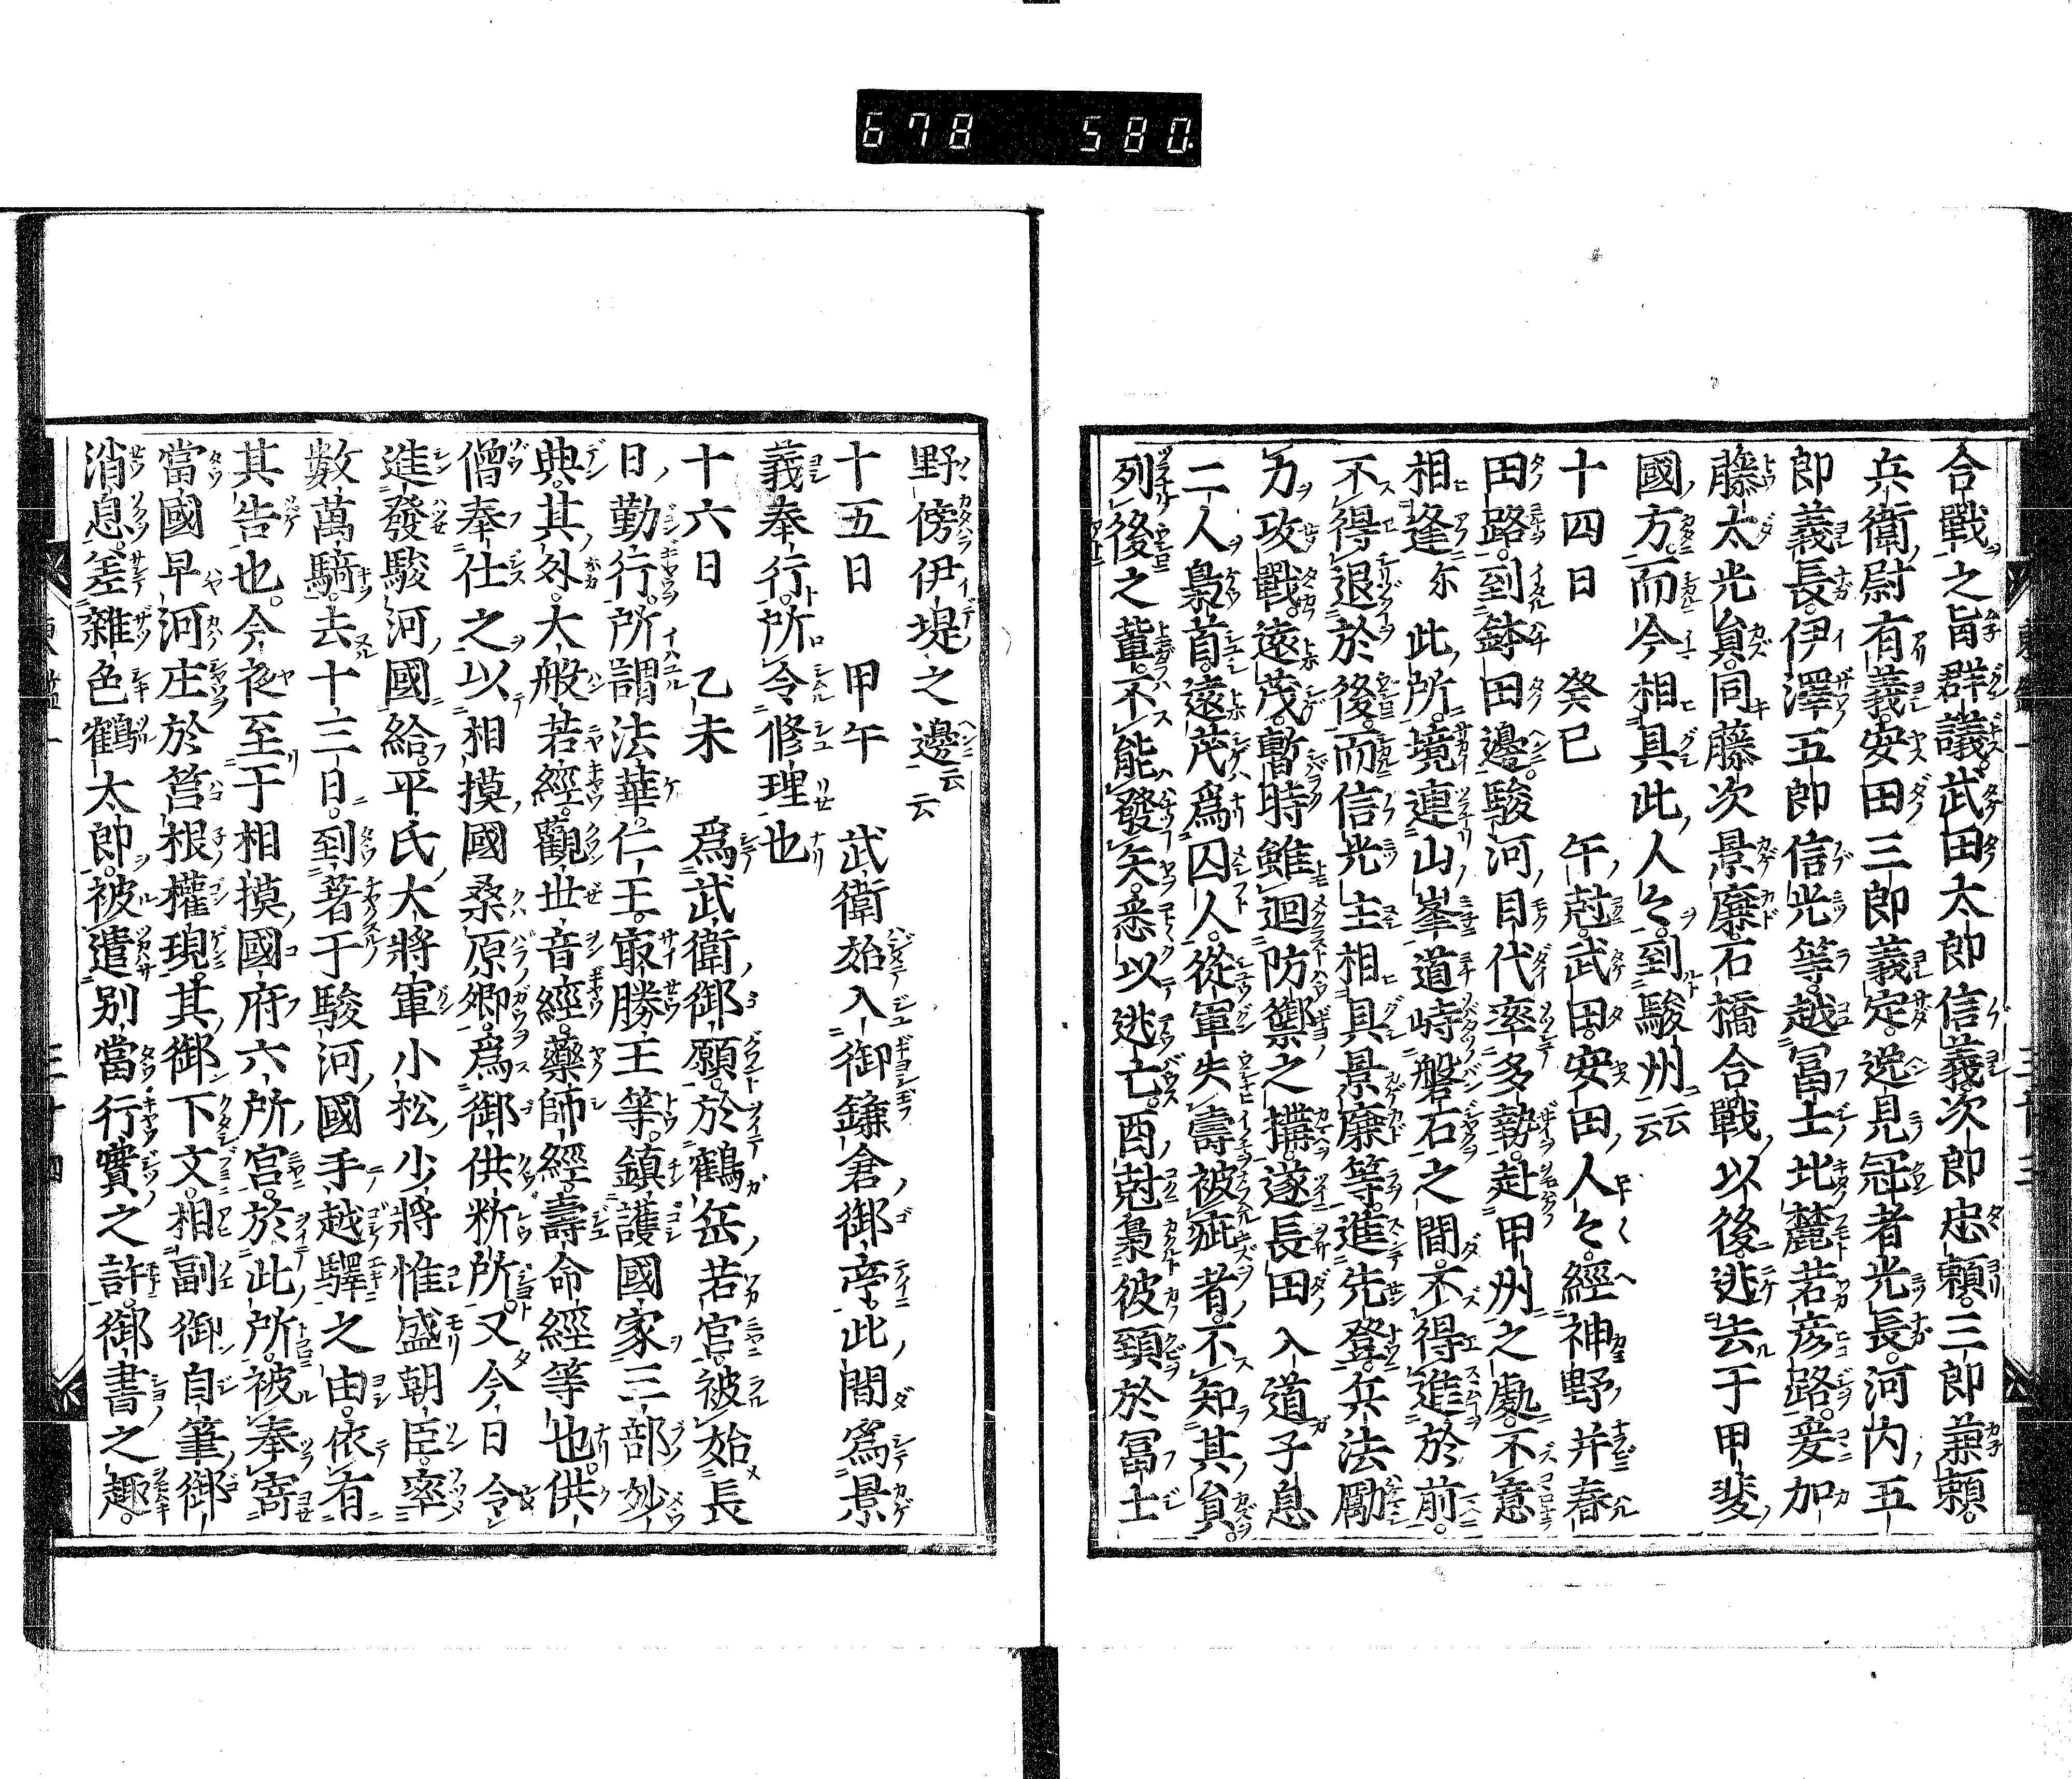 678 580
合戰之旨群議武田太郎信義次郎忠頼三郎兼頼
兵衛尉有義安田三郎義定逸見冠者光長河内五
郎義長伊澤五郎信光等越冨士北麓若彦路爰加
藤太光員同藤次景廉石橋合戰以後逃去于甲斐
國方而今相具此人々到駿州云云
十四日 癸巳 午尅武田安田人々經神野并春
田路到鉢田邊駿河目代率多勢赴甲州之處不意
相逢尓此所境連山峯道峙磐石之間不得進於前
不得退於後而信光主相具景廉等進先登兵法勵
力攻戰遠茂暫時雖廻防禦之搆遂長田入道子息
二人梟首遠茂爲囚人從軍失壽被疵者不知其員
列後之輩不能發矢悉以逃亡酉尅梟彼頚於冨士
野傍伊堤之邊云云
十五日 甲午 武衛始入御鎌倉御亭此間爲景
義奉行所令修理也
十六日 乙未 爲武衛御願於鶴岳若宮被始長
日勤行所謂法華仁王㝡勝王等鎮護國家三部妙
典其外大般若經觀世音經藥師經壽命經等也供
僧奉仕之以相摸國桑原郷爲御供粁所又今日令
進發駿河國給平氏大將軍小松少將惟盛朝臣率
數萬騎去十三日到著于駿河國手越驛之由依有
其告也今夜至于相摸國府六所宮於此所被奉寄
當國早河庄於筥根權現其御下文相副御自筆御
消息差雜色鶴太郎被遣別當行實之許御書之趣